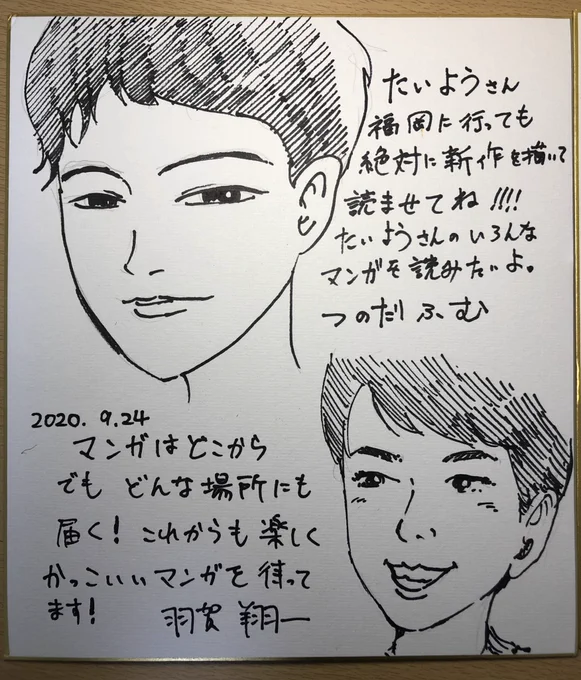 たいようさん
福岡に行っても
絶対に新作を描いて
読ませてね!!!!
たいようさんのいろんな
マンガを読みたいよ。
つのだふむ
2020. 9.24
マンガはどこから
でも どんな場所にも
届く! これからも楽しく
かっこいいマンガを待って
ます!
羽賀翔一